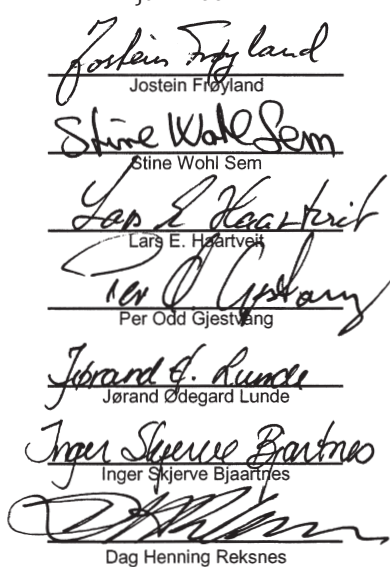 Jostein Frøyland
Jostein Frøyland
Stine Wohl Sem
Stine Wohl Sem
Lars E Haartveit
Lars E. Haartveit
Per O. Gjestvang
Per Odd Gjestvang
Jørand Ø. Lunde
Jørand Ødegard Lunde
Inger Skjerve Bjartnes
Inger Skjerve Bjaartnes
Dag Henning Reksnes